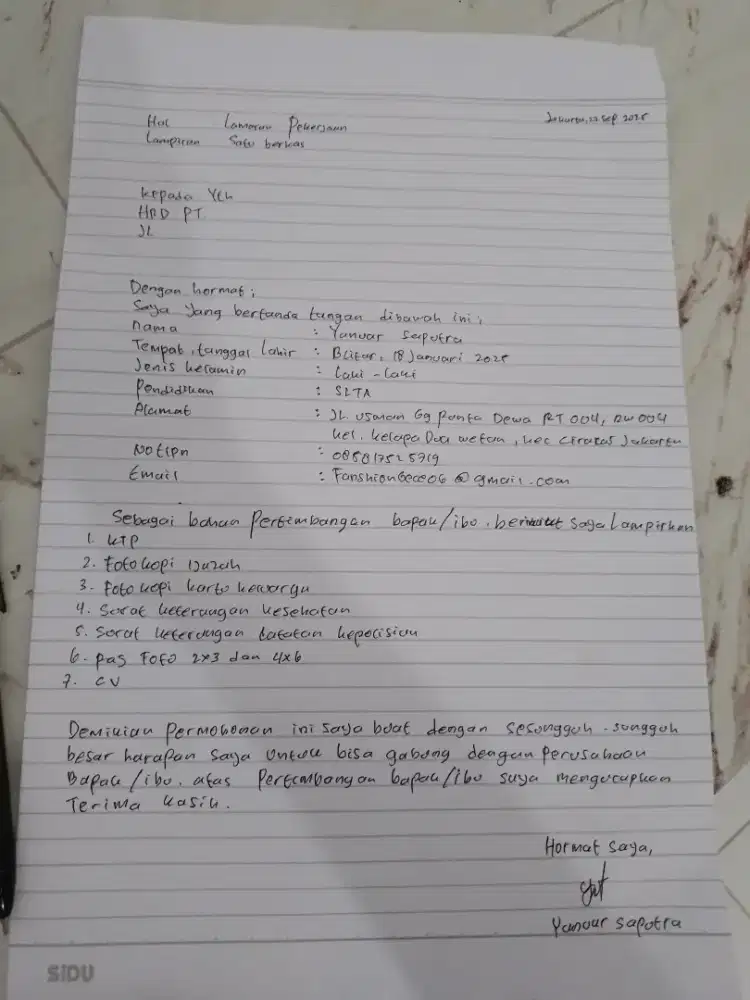 Hal Lamaran Pekerjaan Jakarta, 12 Sep 2025
Lampiran Satu berkas
Kepada Yth
HRD PT.
JL
Dengan hormat;
Saya yang bertanda tangan dibawah ini;
nama : Yanuar Saputra
Tempat, tanggal lahir : Blitar, 18 Januari 2025
Jenis kelamin : Laki-Laki
Pendidikan : SLTA
Alamat : JL. Usman Gg Panta Dewa RT 004, RW 004
kel. kelapa Dua wetan, kec Ciracas Jakarta
No tlpn : 085817525919
Email : Fanshion6ece06@gmail.com
Sebagai bahan Pertimbangan bapak/ibo. berikut saya Lampirkan
1. KTP
2. Foto kopi Ijazah
3. Foto kopi karto kewarga
4. Sorat keterangan kesehatan
5. Sorat keterangan catatan kepolisian
6. pas Foto 2x3 dan 4x6
7. CV
Demikian permohonan ini saya buat dengan sesunggoh-sunggoh
besar harapan saya untuk bisa gabung dengan perusahaan
Bapak/ibo. atas Pertimbangan bapak/ibo saya mengucapkan
Terima kasih.
Hormat saya,
Yanuar Sapotra
SIDU